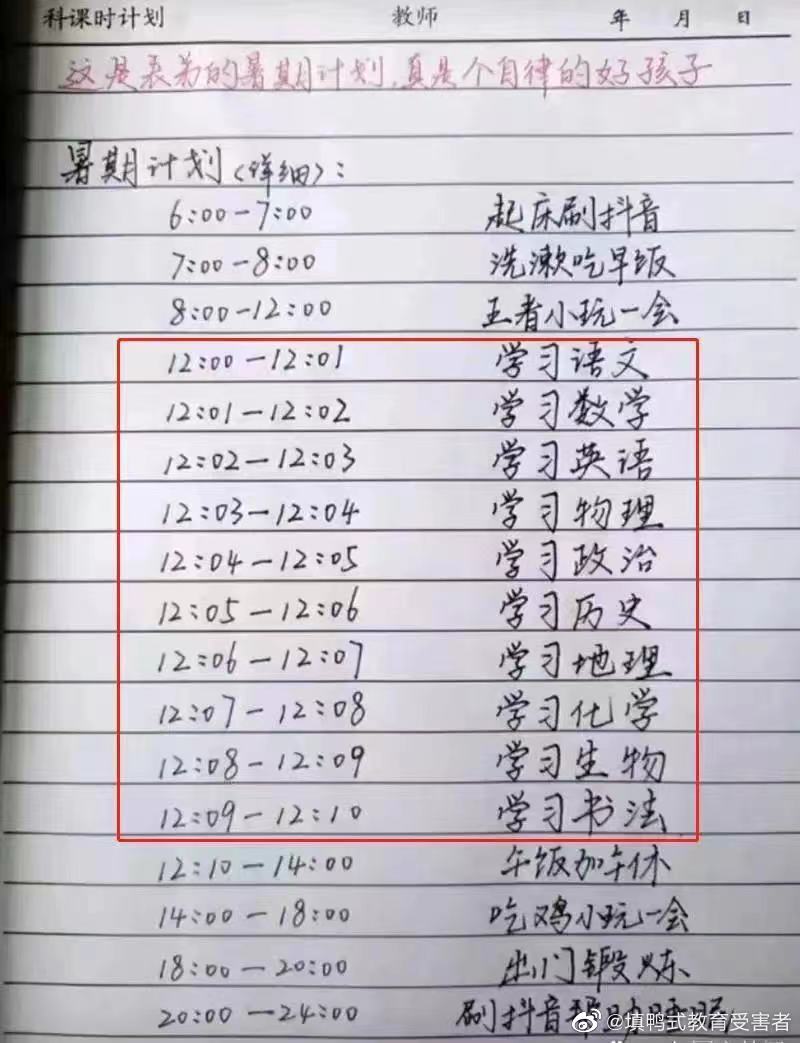 科课时计划 教师 年 月 日
这是表弟的暑期计划,真是个自律的好孩子
暑期计划(详细):
6:00-7:00 起床刷抖音
7:00-8:00 洗漱吃早饭
8:00-12:00 王者小玩一会
12:00-12:01 学习语文
12:01-12:02 学习数学
12:02-12:03 学习英语
12:03-12:04 学习物理
12:04-12:05 学习政治
12:05-12:06 学习历史
12:06-12:07 学习地理
12:07-12:08 学习化学
12:08-12:09 学习生物
12:09-12:10 学习书法
12:10-14:00 午饭加午休
14:00-18:00 吃鸡小玩一会
18:00-20:00 出门锻炼
20:00-24:00 刷抖音
@填鸭式教育受害者